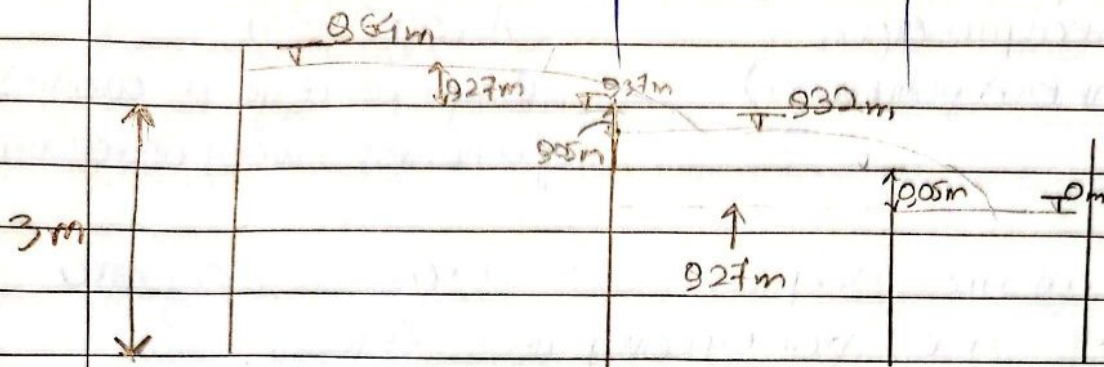 0,64m
0,27m
0,37m
0,32m
0,05m
0,05m
0m
3m
0,27m